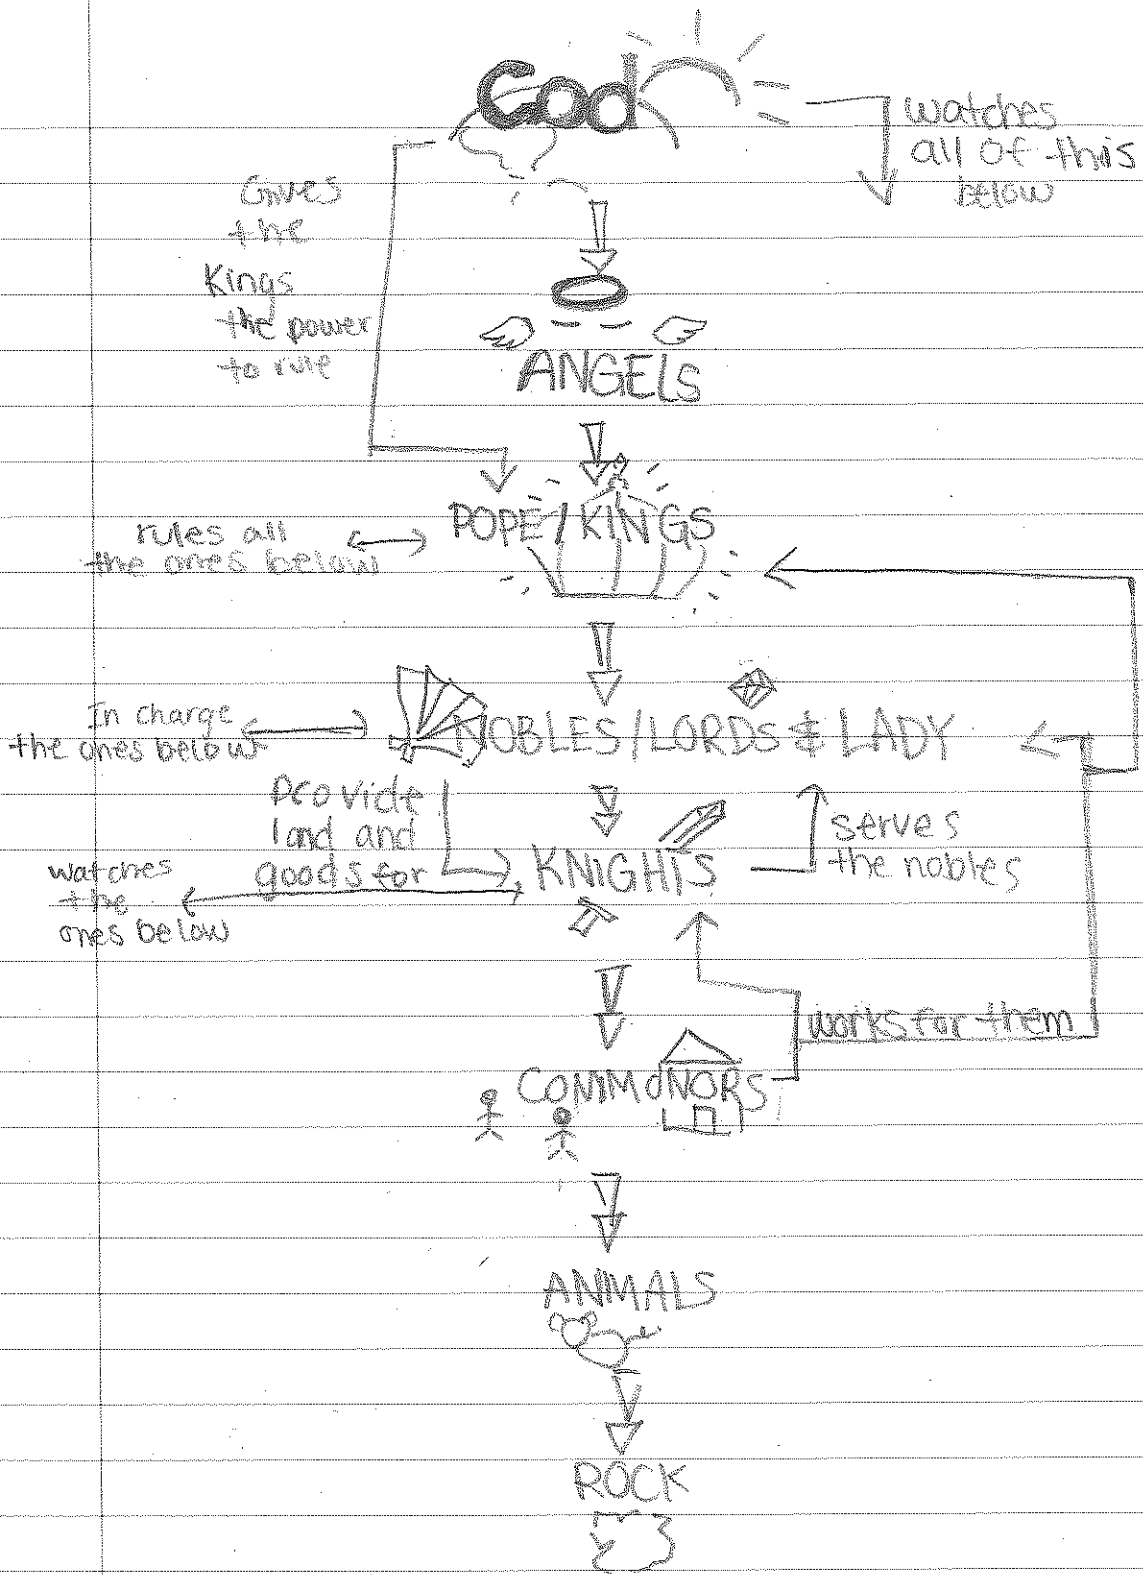 God
watches
all of this
below
Gives
the
Kings
the power
to rule
ANGELS
POPE / KINGS
rules all
the ones below
In charge
the ones below
NOBLES / LORDS & LADY
provide
land and
goods for
KNIGHTS
serves
the nobles
watches
the
ones below
works for them
COMMONORS
ANIMALS
ROCK